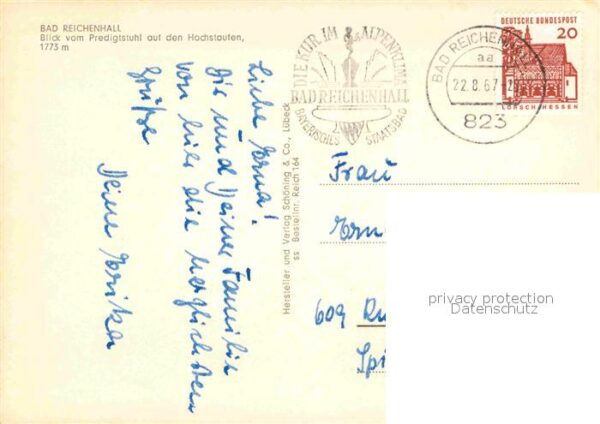 BAD REICHENHALL
Blick vom Predigtstuhl auf den Hochstaufen,
1773 m
Liebe Erna!
Dir und Deiner Familie
von hier die herzlichsten
Grüße
Deine Erika
Hersteller und Verlag Schöning & Co., Lübeck
ss Bestellnr. Reich 164
DIE KUR IM ALPENKLIMA
BAD REICHENHALL
BAYERISCHES STAATSBAD
BAD REICHENHALL
aa
22.8.67
823
DEUTSCHE BUNDESPOST
20
LORSCH/HESSEN
Frau
Ern
609 Rü
privacy protection
Datenschutz